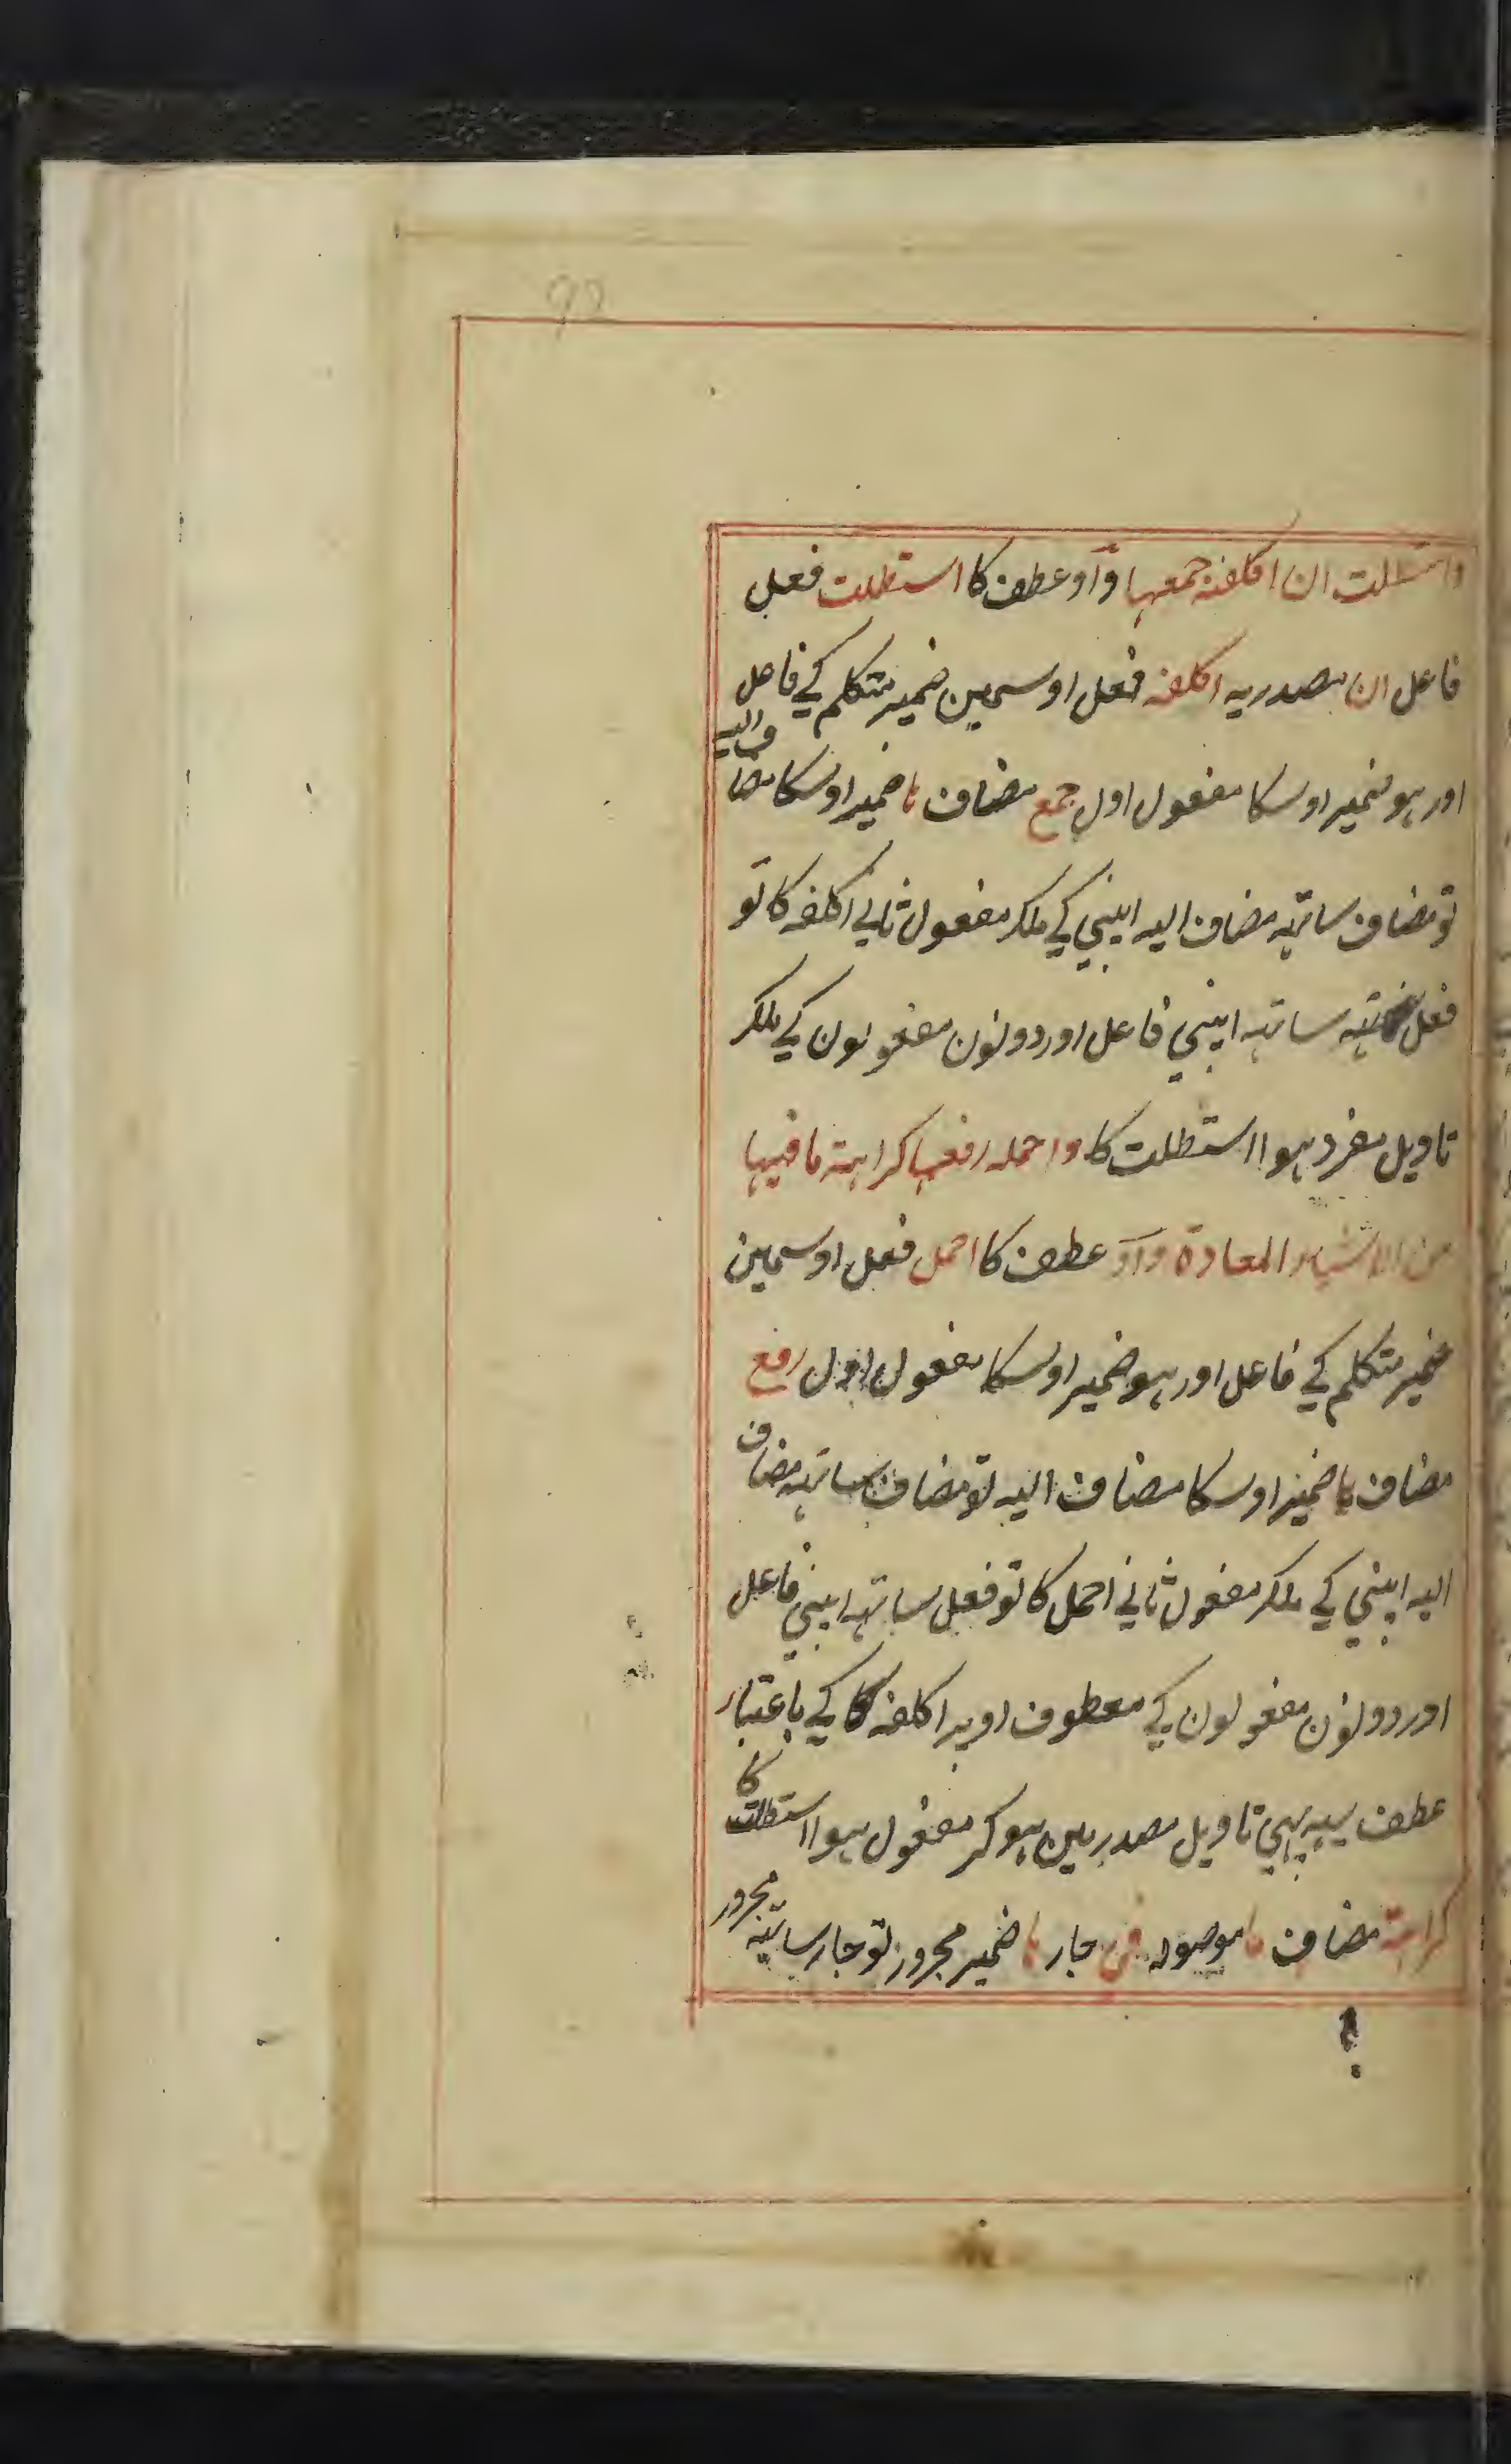 92
واستطلت ان اكلفه جمعها واو عطف کا استطلت فعل
فاعل ان مصدریه اکلفه فعل اوسمین ضمیر متکلم کے فاعل
اور ہو ضمیر اوسکا مفعول اول جمع مضاف ہا ضمیر اوسکا مضاف الیه
تو مضاف ساتہہ مضاف الیه اپنی کے ملکر مفعول ثانے اکلفه کا تو
فعل ساتہه اپنی فاعل اور دونون مفعولون کے ملکر
تاویل مفرد ہوا استطلت کا واحمله رفعها كراهة ما فيها
من الاشياء المعادة واو عطف کا احمل فعل اوسمین
ضمیر متکلم کے فاعل اور ہو ضمیر اوسکا مفعول اول رفع
مضاف ہا ضمیر اوسکا مضاف الیه تو مضاف ساتہه مضاف
الیه اپنی کے ملکر مفعول ثانے احمل کا تو فعل ساتہه اپنی فاعل
اور دونون مفعولون کے معطوف اوپر اکلفه کے باعتبار
عطف یہہ بہی تاویل مصدر مین ہو کر مفعول ہوا استطلت کا
كراهة مضاف ما موصوله فی جار ہا ضمیر مجرور تو جار ساتہه مجرور